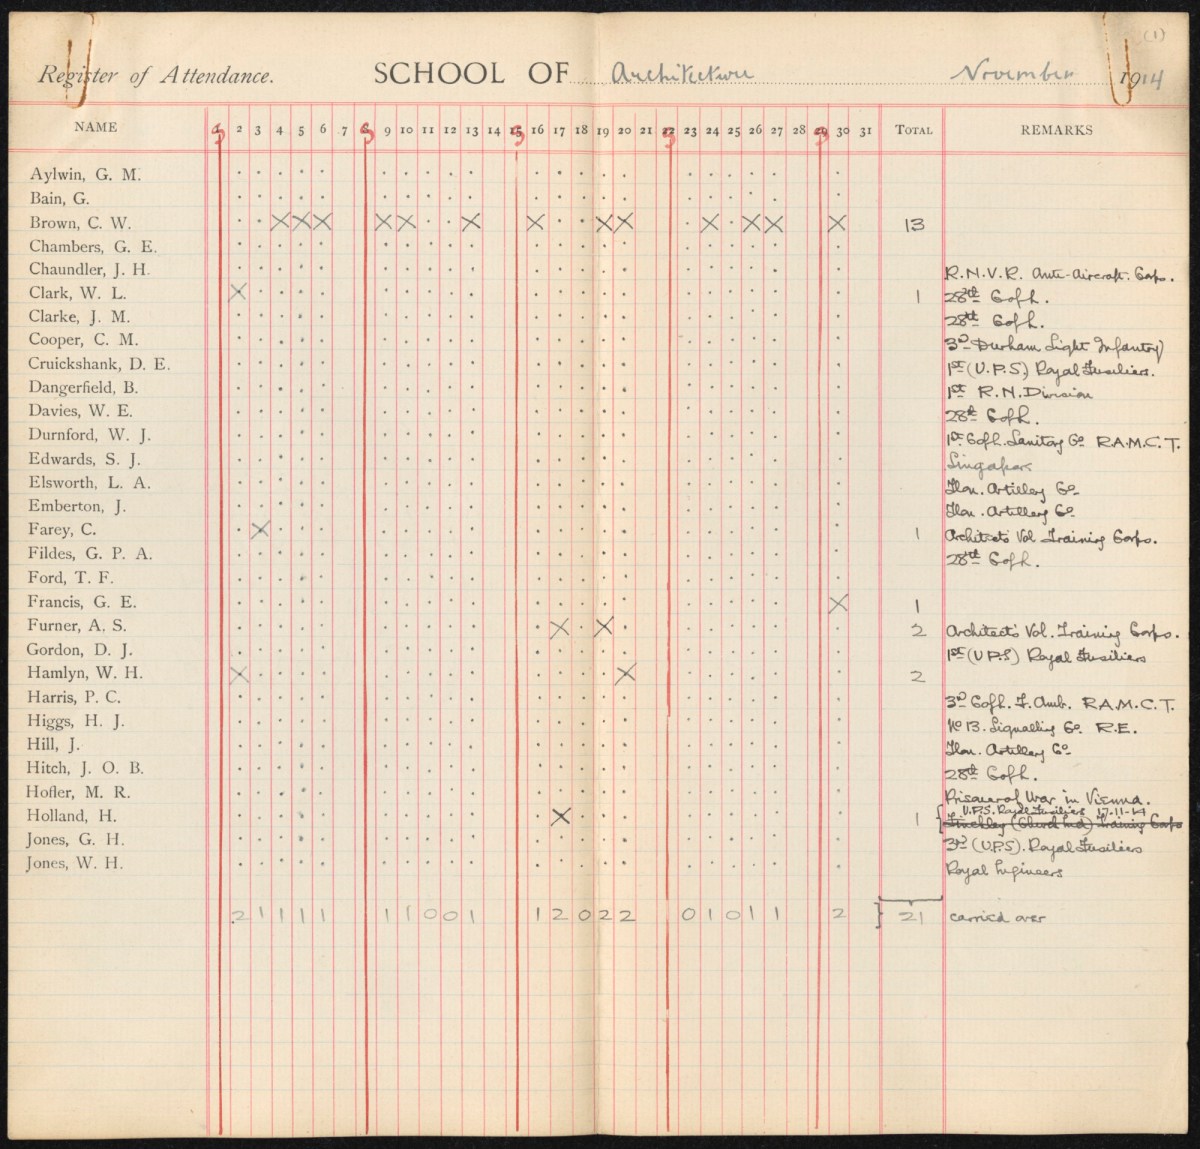 (1)
Register of Attendance. SCHOOL OF Architecture November 1914
NAME S 2 3 4 5 6 7 S 9 10 11 12 13 14 S 16 17 18 19 20 21 22 S 23 24 25 26 27 28 29 S 30 31 TOTAL REMARKS
Aylwin, G. M.
Bain, G.
Brown, C. W. X X X X X X X X X X X X X 13
Chambers, G. E.
Chaundler, J. H. R.N.V.R. Anti-Aircraft. Corps.
Clark, W. L. X 1 28th Lofh.
Clarke, J. M. 28th Lofh.
Cooper, C. M. 3rd Durham Light Infantry
Cruickshank, D. E. 1st (U.P.S.) Royal Fusiliers.
Dangerfield, B. 1st R.N. Division
Davies, W. E. 28th Lofh.
Durnford, W. J. 1st Lofh. Sanitary Co R.A.M.C.T.
Edwards, S. J. Singapore
Elsworth, L. A. Hon. Artillery Co
Emberton, J. Hon. Artillery Co
Farey, C. X 1 Architects Vol Training Corps.
Fildes, G. P. A. 28th Lofh.
Ford, T. F.
Francis, G. E. X 1
Furner, A. S. X X 2 Architect's Vol. Training Corps.
Gordon, D. J. 1st (U.P.S) Royal Fusiliers
Hamlyn, W. H. X X 2
Harris, P. C. 3rd Lofh. F. Amb. R.A.M.C.T.
Higgs, H. J. No 13. Signalling Co. R.E.
Hill, J. Hon. Artillery Co
Hitch, J. O. B. 28th Lofh.
Hofler, M. R. Prisoner of War in Vienna.
U.P.S. Royal Fusiliers 17-11-14
Holland, H. X 1 Finchley (Church End) Training Corps
Jones, G. H. 3rd (U.P.S). Royal Fusiliers
Jones, W. H. Royal Engineers
2 1 1 1 1 1 1 0 0 1 1 2 0 2 2 0 1 0 1 1 2 21 carried over